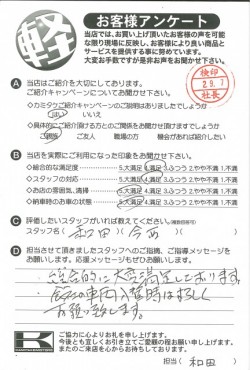 軽
お客様アンケート
当店では、お買い上げ頂いたお客様の声を可能
な限り現場に反映し、お客様により良い商品と
サービスを提供する事に努めています。
大変お手数ですが是非お声をお聞かせ下さい。
A 当店はご紹介を大切にしております。
ご紹介キャンペーンについてお聞かせ下さい
検印
29.9.7
社長
<カミタケご紹介キャンペーンのご説明はありましたでしょうか
はい いいえ
<具体的にご紹介頂ける方とのご関係をお聞かせ頂けますでしょうか
ご親族 ご友人 職場の方 機会があれば紹介したい
B 当店を実際にご利用になった印象をお聞かせ下さい。
◇総合的な満足度 5.大満足 4.満足 3.ふつう 2.やや不満 1.不満
◇スタッフの対応 5.大満足 4.満足 3.ふつう 2.やや不満 1.不満
◇お店の雰囲気、清掃 5.大満足 4.満足 3.ふつう 2.やや不満 1.不満
◇納車時のお車の状態 5.大満足 4.満足 3.ふつう 2.やや不満 1.不満
C 評価したいスタッフがいれば教えてください。(複数回答可)
スタッフ名( 和田 今西 )
D 担当させて頂きましたスタッフへのご指摘、ご指導メッセージを
お願いします。応援メッセージもぜひお願いします。
・総合的に大変満足しております。
お願い致します。
K
ご協力に心よりお礼を申し上げます。
今後とも宜しくお引き立てご愛顧の程お願い申し上げます。
またのご来店を心からお待ちしております。
担当( 和田 )